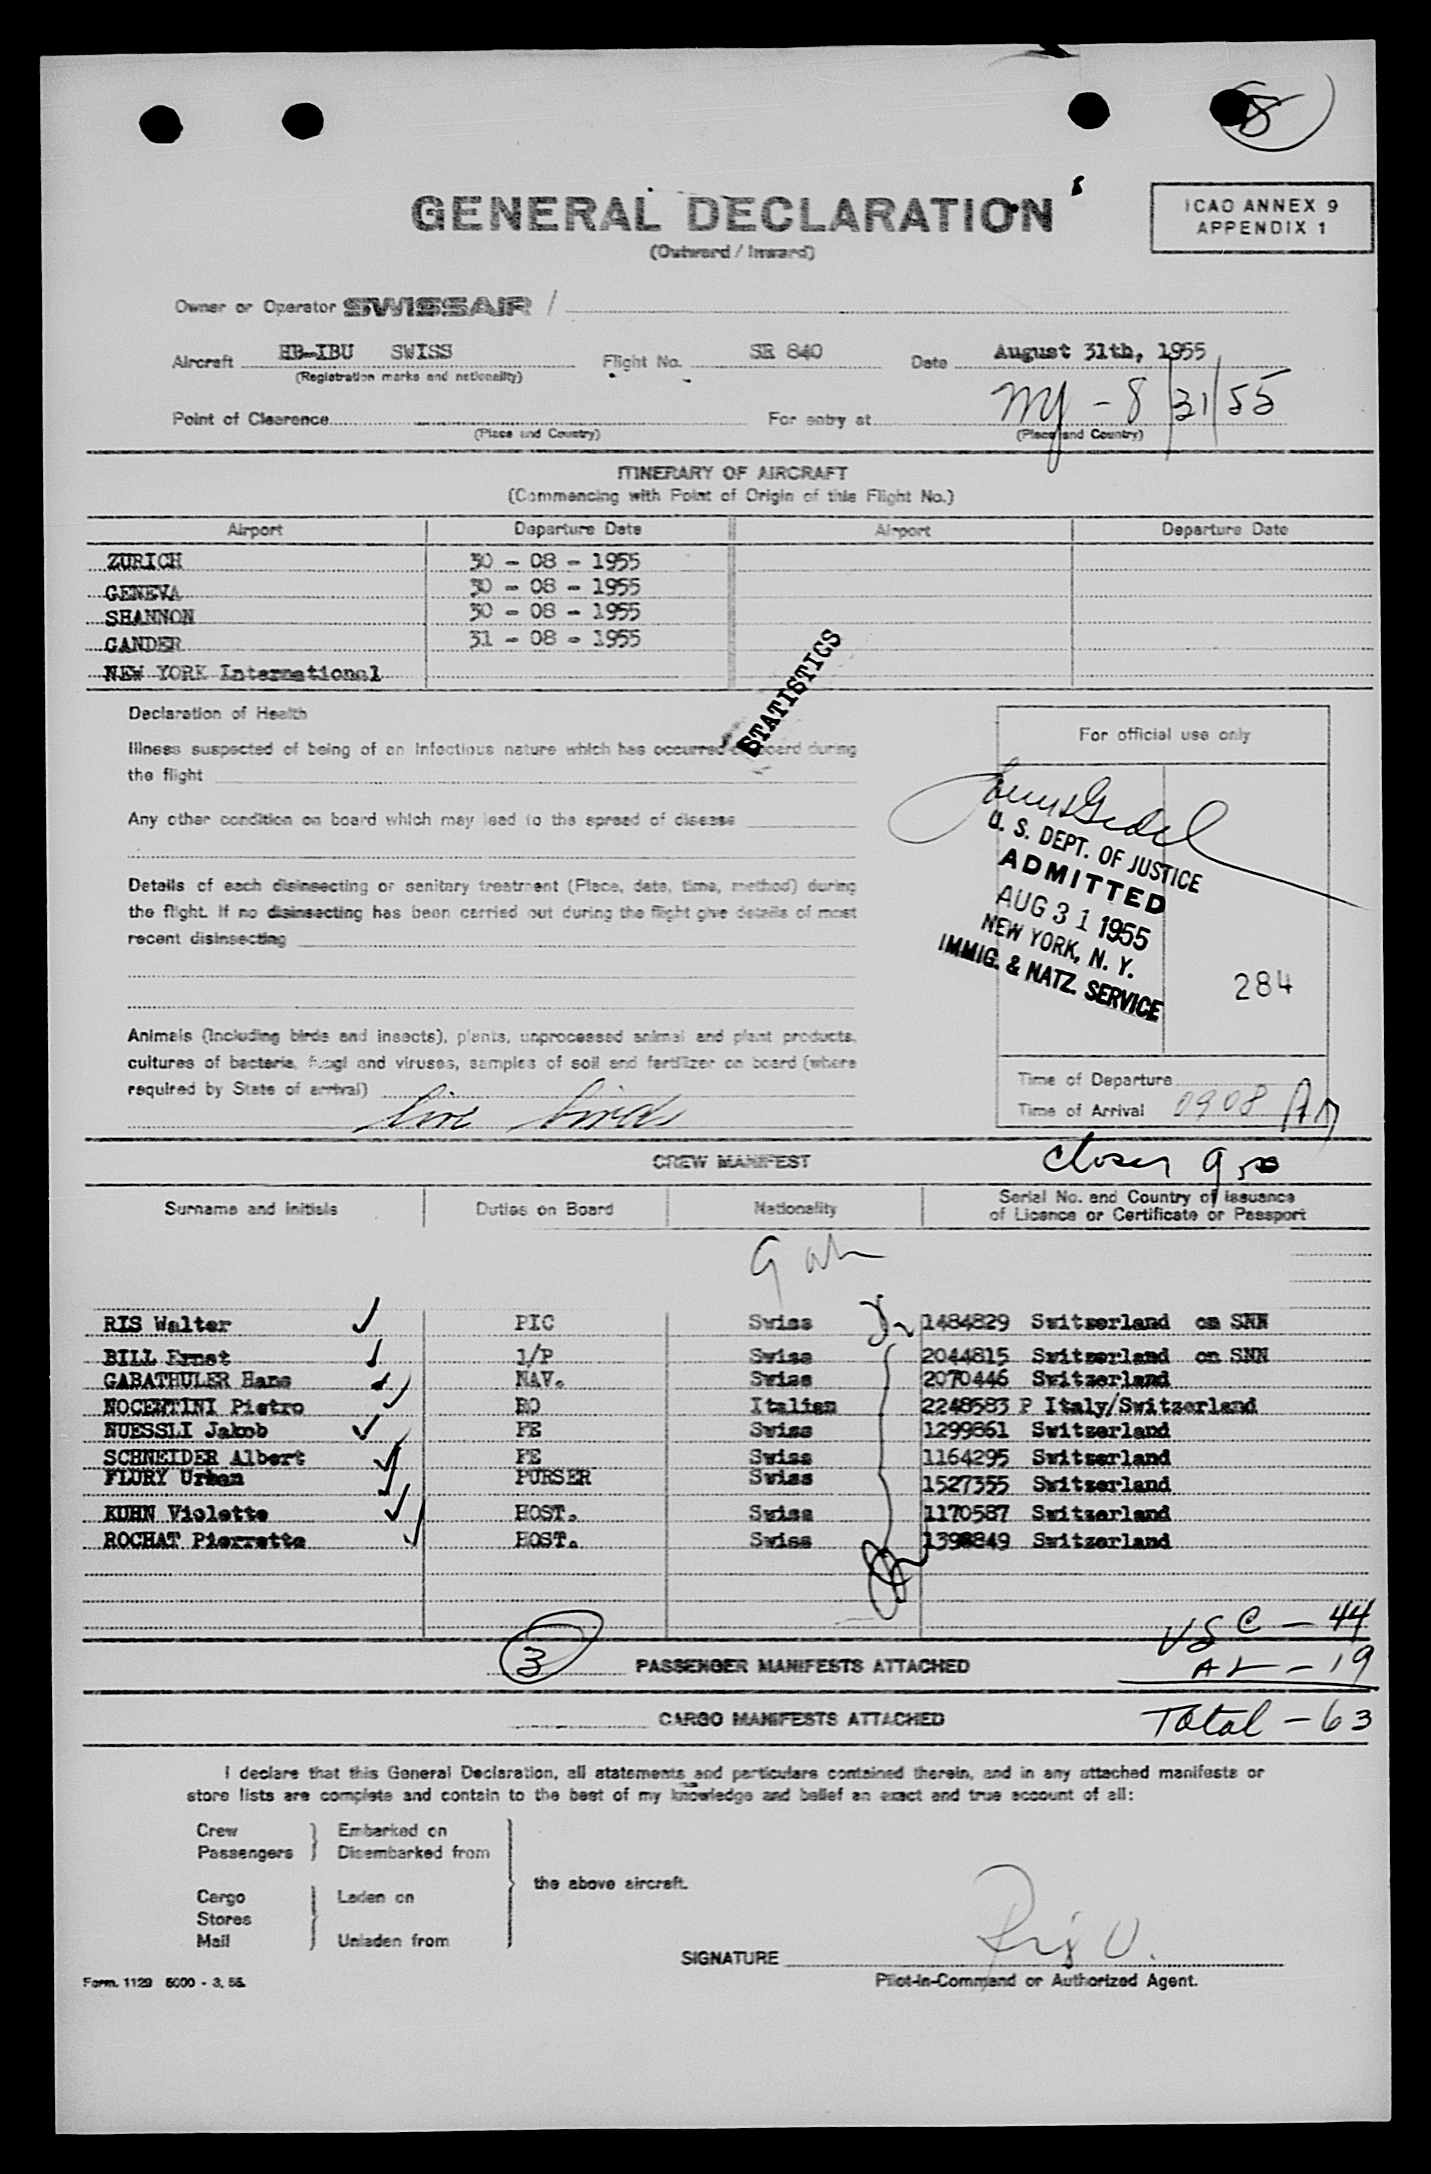 8
GENERAL DECLARATION
(Outward / Inward)
ICAO ANNEX 9
APPENDIX 1
Owner or Operator SWISSAIR /
Aircraft HB-IBU SWISS Flight No. SR 840 Date August 31th, 1955
(Registration marks and nationality)
Point of Clearence For entry at NY - 8/31/55
(Place and Country) (Place and Country)
ITINERARY OF AIRCRAFT
(Commencing with Point of Origin of this Flight No.)
Airport Departure Date Airport Departure Date
ZURICH 30 - 08 - 1955
GENEVA 30 - 08 - 1955
SHANNON 30 - 08 - 1955
GANDER 31 - 08 - 1955
NEW YORK International
STATISTICS
Declaration of Health
Illness suspected of being of an infectious nature which has occurred on board during
the flight
Any other condition on board which may lead to the spread of disease
Details of each disinsecting or sanitary treatment (Place, date, time, method) during
the flight. If no disinsecting has been carried out during the flight give details of most
recent disinsecting
Animals (including birds and insects), plants, unprocessed animal and plant products,
cultures of bacteria, fungi and viruses, samples of soil and fertilizer on board (where
required by State of arrival)
live birds
For official use only
U. S. DEPT. OF JUSTICE
ADMITTED
AUG 31 1955
NEW YORK, N. Y.
IMMIG. & NATZ. SERVICE
284
Time of Departure
Time of Arrival 0908 AM
CREW MANIFEST
Surname and Initials Duties on Board Nationality Serial No. and Country of issuance
of Licence or Certificate or Passport
RIS Walter PIC Swiss 1484829 Switzerland on SNN
BILL Ernst 1/P Swiss 2044815 Switzerland on SNN
GABATHULER Hans NAV. Swiss 2070446 Switzerland
NOCENTINI Pietro RO Italian 2248583 P Italy/Switzerland
NUESSLI Jakob FE Swiss 1299861 Switzerland
SCHNEIDER Albert FE Swiss 1164295 Switzerland
FLURY Urban PURSER Swiss 1527355 Switzerland
KUHN Violette HOST. Swiss 1170587 Switzerland
ROCHAT Pierrette HOST. Swiss 1398849 Switzerland
USC - 44
3 PASSENGER MANIFESTS ATTACHED
AL - 19
CARGO MANIFESTS ATTACHED
Total - 63
I declare that this General Declaration, all statements and particulars contained therein, and in any attached manifests or
store lists are complete and contain to the best of my knowledge and belief an exact and true account of all:
Crew Embarked on
Passengers Disembarked from
the above aircraft.
Cargo Laden on
Stores
Mail Unladen from
SIGNATURE Ris W.
Pilot-in-Command or Authorized Agent.
Form. 1129 5000 - 3. 55.